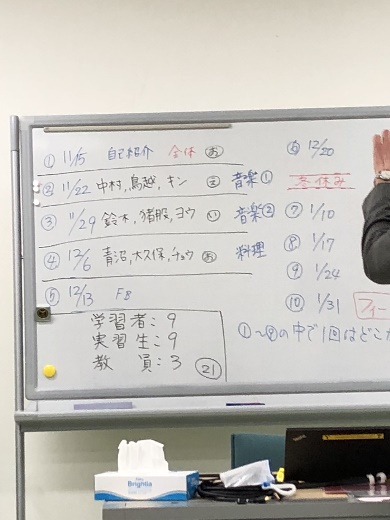 ① 11/5 自己紹介 全体 お
② 11/22 中村, 鳥越, キン ま 音楽①
③ 11/29 鈴木, 猪股, ヨウ い 音楽②
④ 12/6 青沼, 大久保, チョウ お 料理
⑤ 12/13 FB
学習者: 9
実習生: 9
教員: 3 ㉑
⑥ 12/20
冬休み
⑦ 1/10
⑧ 1/17
⑨ 1/24
⑩ 1/31 フィー
の中で1回はどこか
Brightia